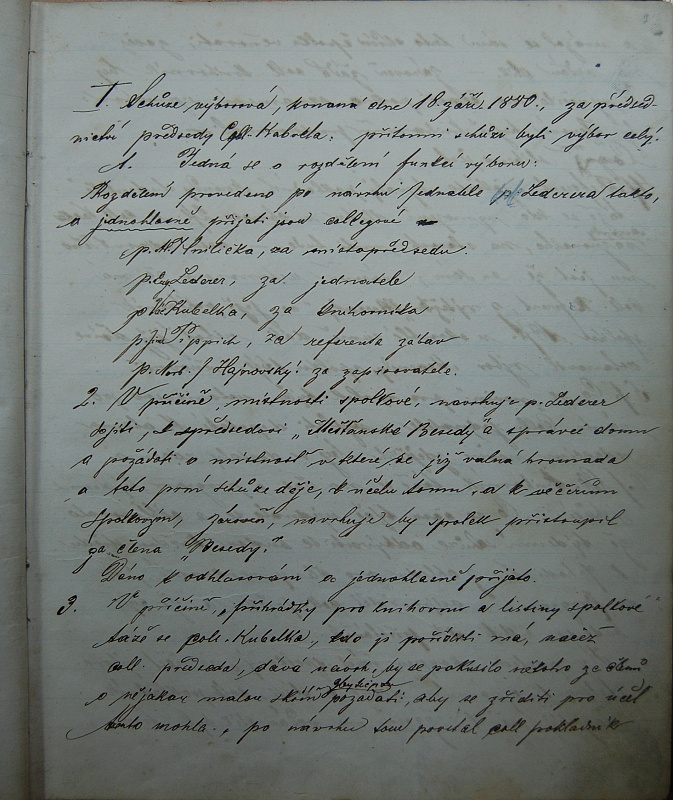 I. Schůze výborová, konaná dne 18. září 1880., za předsed-
nictví předsedy Coll. Kabeláta: přítomni schůzi byli výbor celý.
1. Jedná se o rozdělení funkcí výboru:
Rozdělení provedeno po návrhu jednatele p. Lederera takto,
a jednohlasně přijati jsou collegové
p. A. Hnilička, za místopředsedu.
p. Eug. Lederer, za jednatele
p. Kubelka, za knihovníka
p. Pippich, za referenta zábav
p. Norb. J Hajnovský: za zapisovatele.
2. V příčině místnosti spolkové, navrhuje p. Lederer
dojíti, k předsedovi "Měšťanské Besedy" a správci domu
a požádati o místnost v které se již valná hromada
a tato první schůze děje, k účelu tomu, a k večerům
spolkovým, zároveň, navrhuje by spolek přistoupil
za člena "Besedy."
Dáno k odhlasování a jednohlasně přijato.
3. V příčině, přihrádky pro knihovnu a listiny spolkové
táže se coll. Kubelka, kdo ji poříditi má, načež
coll. předseda, dává návrh, by se pokusilo někoho ze členů
o nějakou malou skříň požádati, aby se zříditi pro účel
tento mohla., po návrhu tom povstal coll pokladník